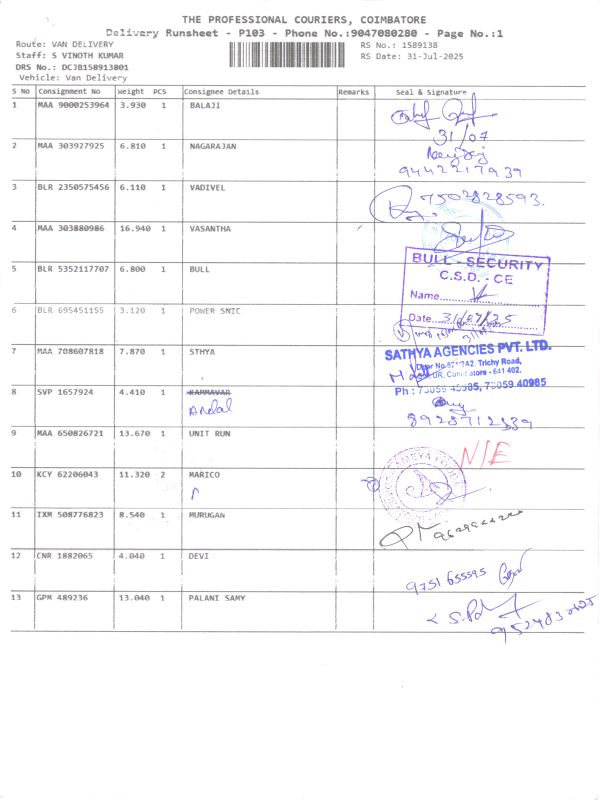 THE PROFESSIONAL COURIERS, COIMBATORE
Delivery Runsheet - P103 - Phone No.:9047080280 - Page No.:1
Route: VAN DELIVERY
RS No.: 1589138
Staff: S VINOTH KUMAR
RS Date: 31-Jul-2025
DRS No.: DCJB158913801
Vehicle: Van Delivery
S No Consignment No Weight PCS Consignee Details Remarks Seal & Signature
1 MAA 9000253964 3.930 1 BALAJI
31/07
2 MAA 303927925 6.810 1 NAGARAJAN
9442217939
3 BLR 2350575456 6.110 1 VADIVEL
7502828593.
4 MAA 303880986 16.940 1 VASANTHA
BULL - SECURITY
C.S.D. - CE
5 BLR 5352117707 6.800 1 BULL
Name
Date 31/07/25
6 BLR 695451155 3.120 1 POWER SMIC
7 MAA 708607818 7.870 1 STHYA
SATHYA AGENCIES PVT. LTD.
Trichy Road,
641 402.
Ph : 73059 40985
8 SVP 1657924 4.410 1 KAMMAVAR
Andal
9 MAA 650826721 13.670 1 UNIT RUN
N/E
10 KCY 62206043 11.320 2 MARICO
11 IXM 508776823 8.540 1 MURUGAN
12 CNR 1882065 4.040 1 DEVI
13 GPM 489236 13.040 1 PALANI SAMY